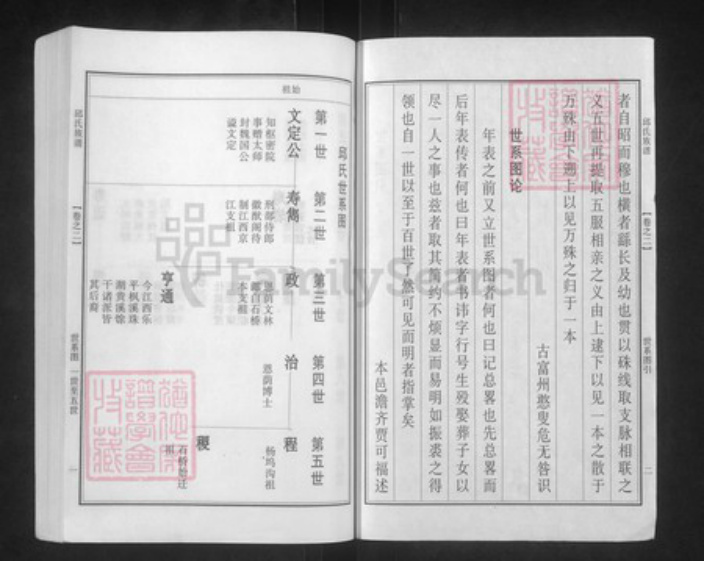 者自昭而穆也横者繇长及幼也贯以硃线取支脉相联之
又五世再提取五服相亲之义由上逮下以见一本之散于
万殊由下遡上以见万殊之归于一本
古富州憨叟危无咎识
世系图论
年表之前又立世系图者何也曰记总畧也先总畧而
后年表传者何也曰年表者书讳字行号生殁娶葬子女以
尽一人之事也兹者取其简约不烦显而易明如振裘之得
领也自一世以至于百世了然可见而明者指掌矣
本邑澹齐贾可福述
邱氏族谱
【卷之二】
世系图引
二
邱氏世系图
第一世
第二世
第三世
第四世
第五世
始祖
文定公
知枢密院
事赠太师
封魏国公
谥文定
寿隽
刑部侍郎
徽猷阁待
制江西京
江支祖
政
恩荫文林
郎白石桥
本支祖
治
恩荫博士
程
杨坞沟祖
亨通
今江西乐
平枫溪珠
湖黄溪馀
干诸派皆
其后裔
稷
石桥始迁
祖
邱氏族谱
【卷之二】
世系图
一世至五世
一
FamilySearch